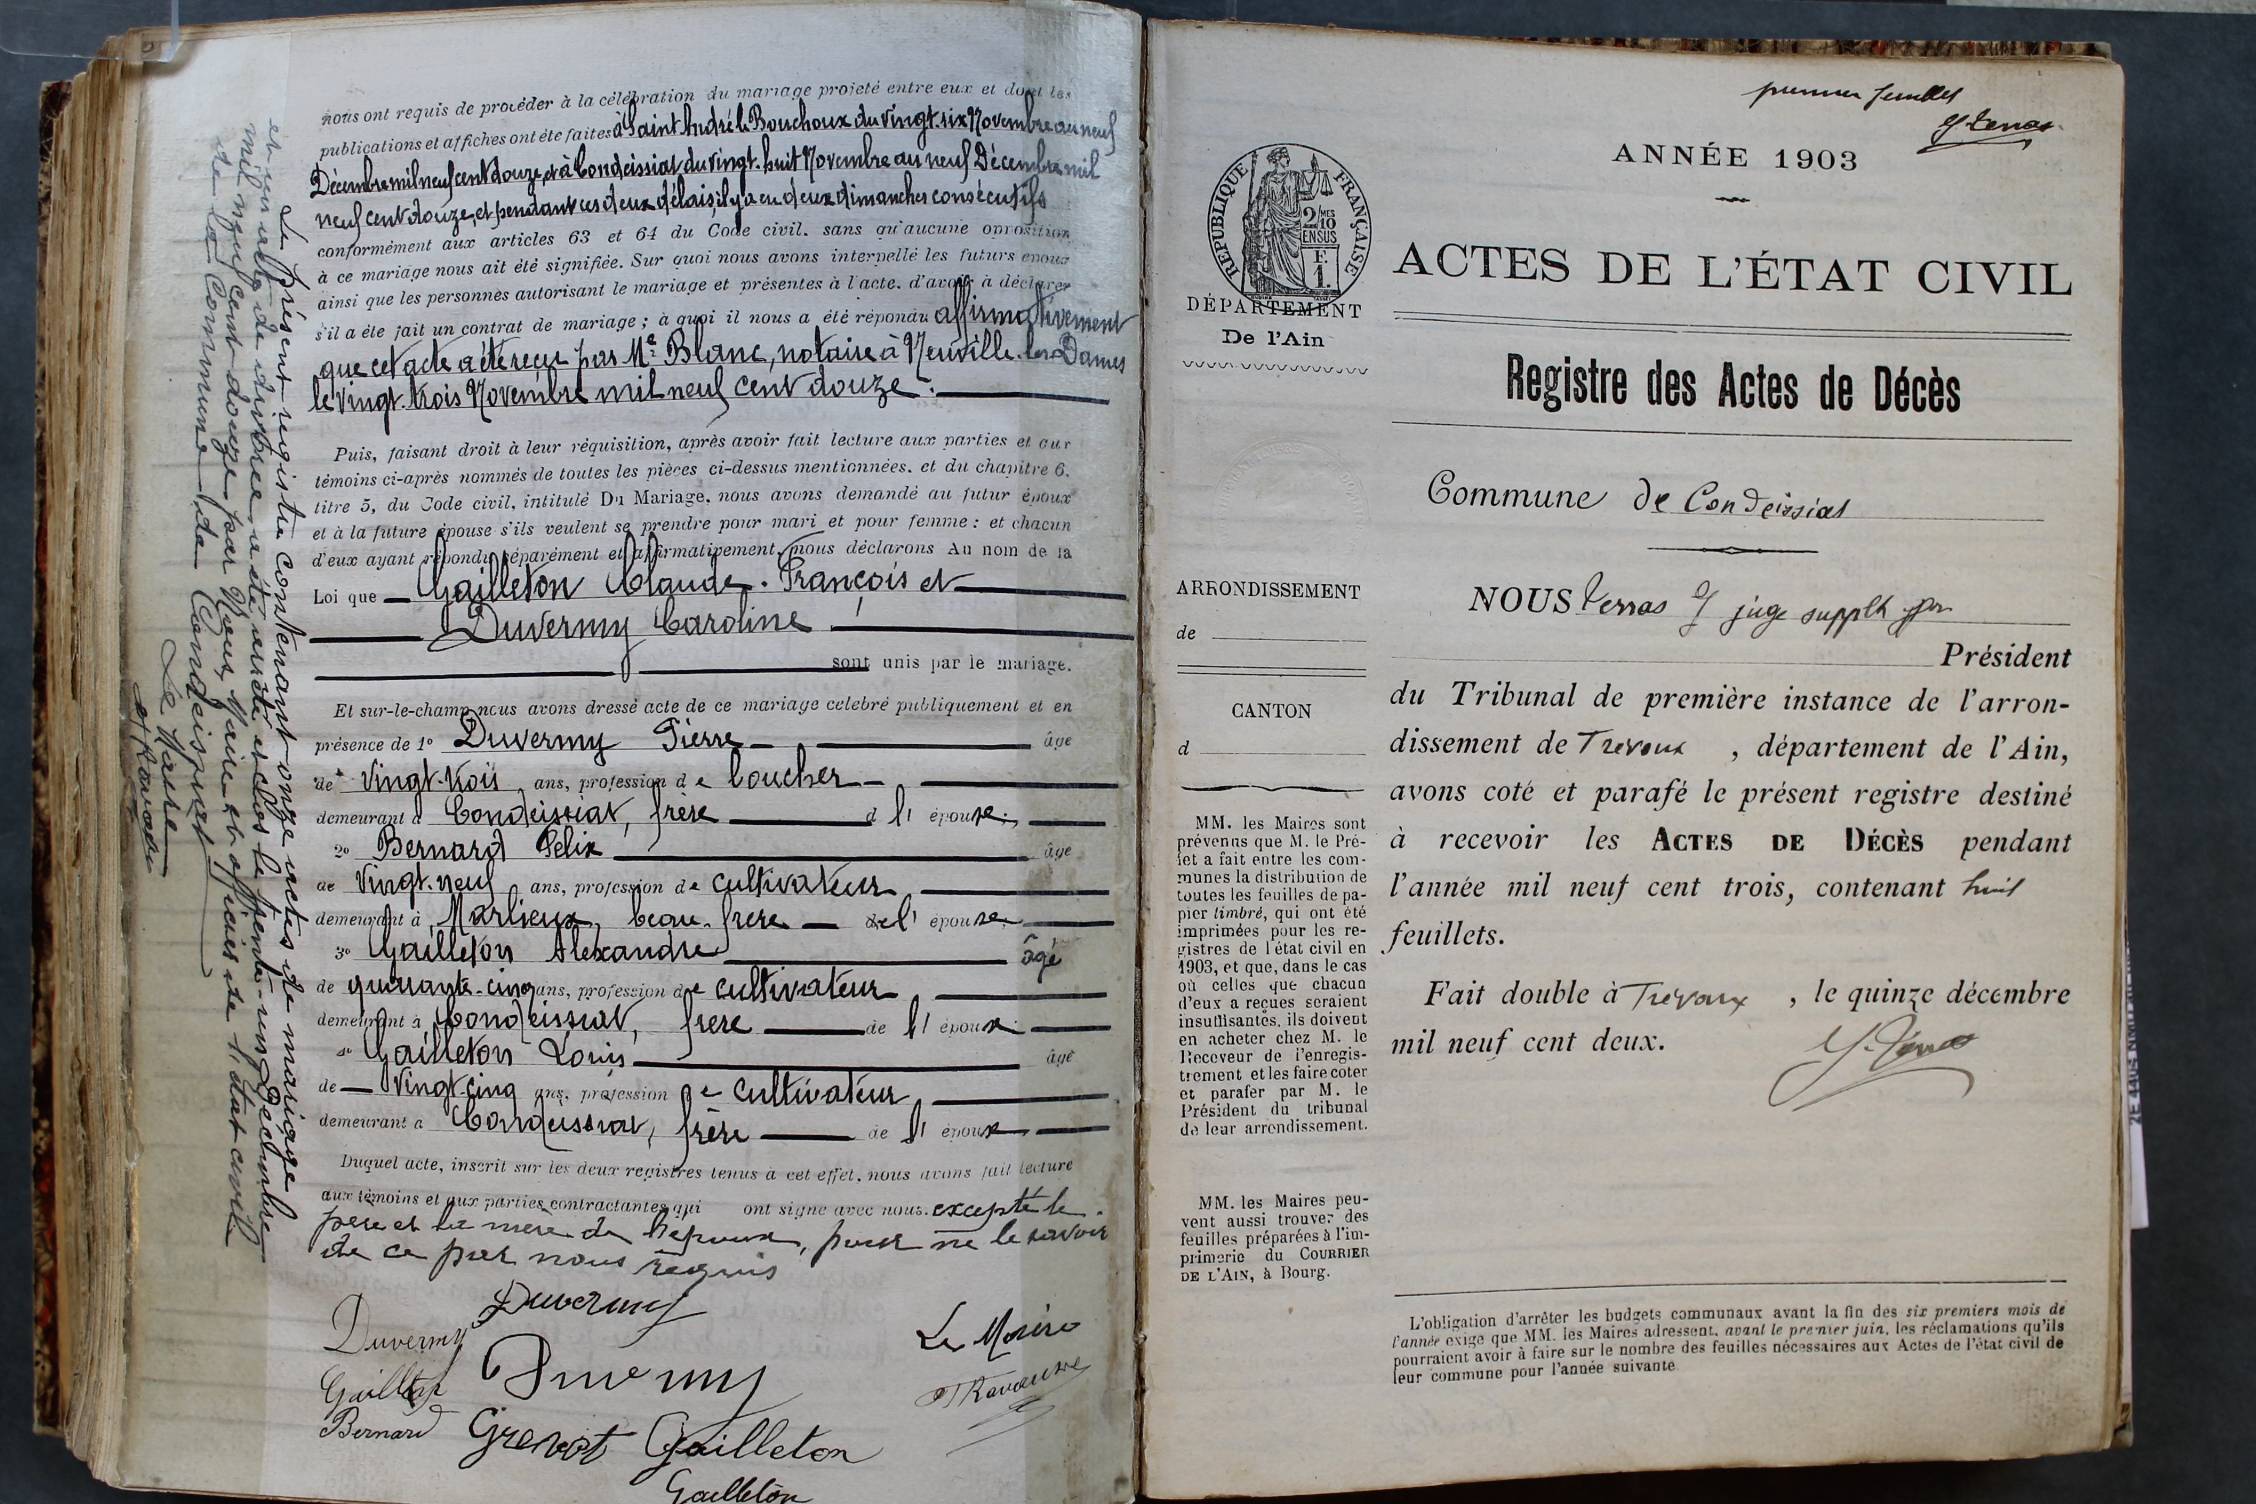 nous ont requis de procéder à la célébration du mariage projeté entre eux et dont les
publications et affiches ont été faites à Saint André le Bouchoux du vingt-six Novembre au neuf
Décembre mil neuf cent douze, et à Condeissiat du vingt-huit Novembre au neuf Décembre mil
neuf cent douze, et pendant ces deux délais, il y a eu deux dimanches consécutifs
conformément aux articles 63 et 64 du Code civil. sans qu'aucune opposition
à ce mariage nous ait été signifiée. Sur quoi nous avons interpellé les futurs époux
ainsi que les personnes autorisant le mariage et présentes à l'acte. d'avoir à déclarer
s'il a été fait un contrat de mariage ; à quoi il nous a été répondu affirmativement
que cet acte a été reçu par Me Blanc, notaire à Neuville-les-Dames
le vingt-trois Novembre mil neuf cent douze.
Puis, faisant droit à leur réquisition, après avoir fait lecture aux parties et aux
témoins ci-après nommés de toutes les pièces ci-dessus mentionnées. et du chapitre 6.
titre 5, du Code civil, intitulé Du Mariage, nous avons demandé au futur époux
et à la future épouse s'ils veulent se prendre pour mari et pour femme : et chacun
d'eux ayant répondu séparément et affirmativement, nous déclarons Au nom de la
Loi que Gailleton Claude-François et
Duvermy Caroline
sont unis par le mariage.
Et sur-le-champ nous avons dressé acte de ce mariage célébré publiquement et en
présence de 1o Duvermy Pierre âge
de vingt-trois ans, profession de boucher
demeurant à Condeissiat, frère d l' épouse;
2o Bernard Félix âge
de vingt-neuf ans, profession de cultivateur
demeurant à Marlieux, beau-frère de l' épouse
3o Gailleton Alexandre âgé
de quarante-cinq ans, profession de cultivateur
demeurant à Condeissiat, frère de l' époux
4o Gailleton Louis âgé
de vingt-cinq ans, profession de cultivateur
demeurant à Condeissiat, frère de l' époux
Duquel acte, inscrit sur les deux registres tenus à cet effet, nous avons fait lecture
aux témoins et aux parties contractantes qui ont signé avec nous. excepté le
père et la mère de l'époux, pour ne le savoir
de ce par nous requis
Duvermy
Duvermy
Le Maire
Duvermy
Gailleton
Bernard
Grenot Gailleton
Gailleton
Le présent registre contenant onze actes de mariage
et un acte de divorce a été arrêté et clos le trente-un Décembre
mil neuf cent douze par Nous, Maire et officier de l'état civil
de la Commune de Condeissiat
Le Maire
premier feuillet
ANNÉE 1903
RÉPUBLIQUE FRANÇAISE
2/MES
10
EN SUS
F.
1.
DÉPARTEMENT
De l'Ain
ACTES DE L'ÉTAT CIVIL
Registre des Actes de Décès
Commune de Condeissiat
ARRONDISSEMENT
de
CANTON
d
MM. les Maires sont
prévenus que M. le Pré-
fet a fait entre les com-
munes la distribution de
toutes les feuilles de pa-
pier timbré, qui ont été
imprimées pour les re-
gistres de l'état civil en
1903, et que, dans le cas
où celles que chacun
d'eux a reçues seraient
insuffisantes, ils doivent
en acheter chez M. le
Receveur de l'enregis-
trement et les faire coter
et parafer par M. le
Président du tribunal
de leur arrondissement.
MM. les Maires peu-
vent aussi trouver des
feuilles préparées à l'im-
primerie du COURRIER
DE L'AIN, à Bourg.
NOUS juge suppl
Président
du Tribunal de première instance de l'arron-
dissement de Trevoux , département de l'Ain,
avons coté et parafé le présent registre destiné
à recevoir les ACTES DE DÉCÈS pendant
l'année mil neuf cent trois, contenant huit
feuillets.
Fait double à Trévoux , le quinze décembre
mil neuf cent deux.
L'obligation d'arrêter les budgets communaux avant la fin des six premiers mois de
l'année exige que MM. les Maires adressent, avant le premier juin, les réclamations qu'ils
pourraient avoir à faire sur le nombre des feuilles nécessaires aux Actes de l'état civil de
leur commune pour l'année suivante